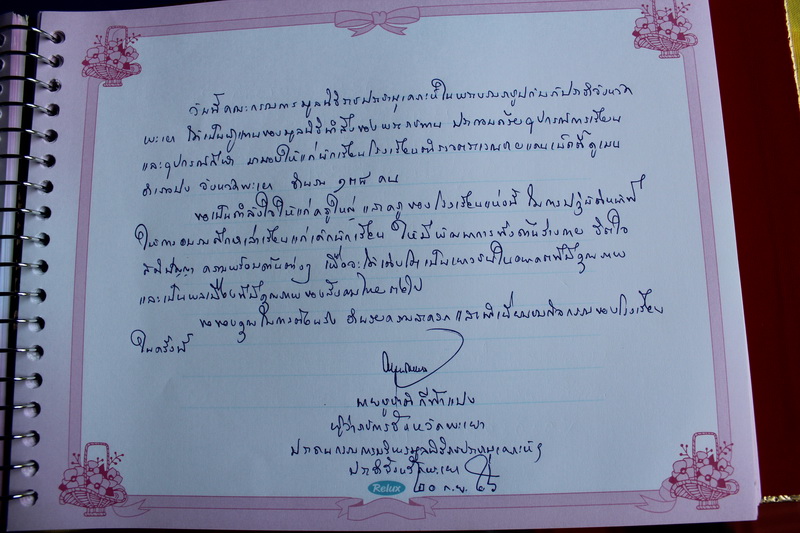 วันนี้คณะกรรมการมูลนิธิราชประชานุเคราะห์ในพระบรมราชูปถัมภ์ประจำจังหวัด
พะเยา ได้เป็นผู้แทนของมูลนิธินำสิ่งของพระราชทาน ประกอบด้วยอุปกรณ์การเรียน
และอุปกรณ์กีฬา มามอบให้แก่นักเรียนโรงเรียนตำรวจตระเวนชายแดนเบ็ตตี้ ดูเมน
อำเภอปง จังหวัดพะเยา จำนวน คน
ขอเป็นกำลังใจให้แก่ครูใหญ่ และครูของโรงเรียนแห่งนี้ ในการปฏิบัติหน้าที่
ให้การอบรมศึกษาเล่าเรียนแก่เด็กนักเรียน ให้มีพัฒนาการทั้งด้านร่างกาย จิตใจ
สติปัญญา ความพร้อมด้านต่างๆ เพื่อจะได้เติบโตเป็นเยาวชนในอนาคตที่มีคุณภาพ
และเป็นพลเมืองที่มีคุณภาพของสังคมไทยต่อไป
ขอขอบคุณในการต้อนรับ อำนวยความสะดวก และ ของโรงเรียน
ในครั้งนี้
นายชูชาติ กีฬาแปง
ผู้ว่าราชการจังหวัดพะเยา
ประธานกรรมการมูลนิธิราชประชานุเคราะห์ฯ
ประจำจังหวัดพะเยา
๒๐ ก.ย. ๕๖
Relux